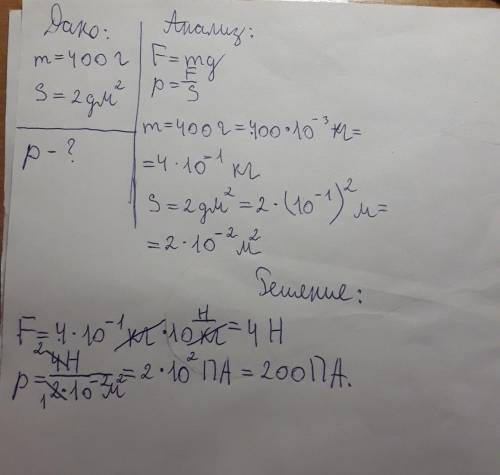 Дано:
m=400г
S=2дм²
p-?
Анализ:
F=mg
p=F/S
m=400г=400·10⁻³кг=
=4·10⁻¹ кг
S=2дм²=2·(10⁻¹)²м=
=2·10⁻²м²
Решение:
F=4·10⁻¹кг·10Н/кг=4Н
p=4Н/2·10⁻²м²=2·10²ПА=200ПА.